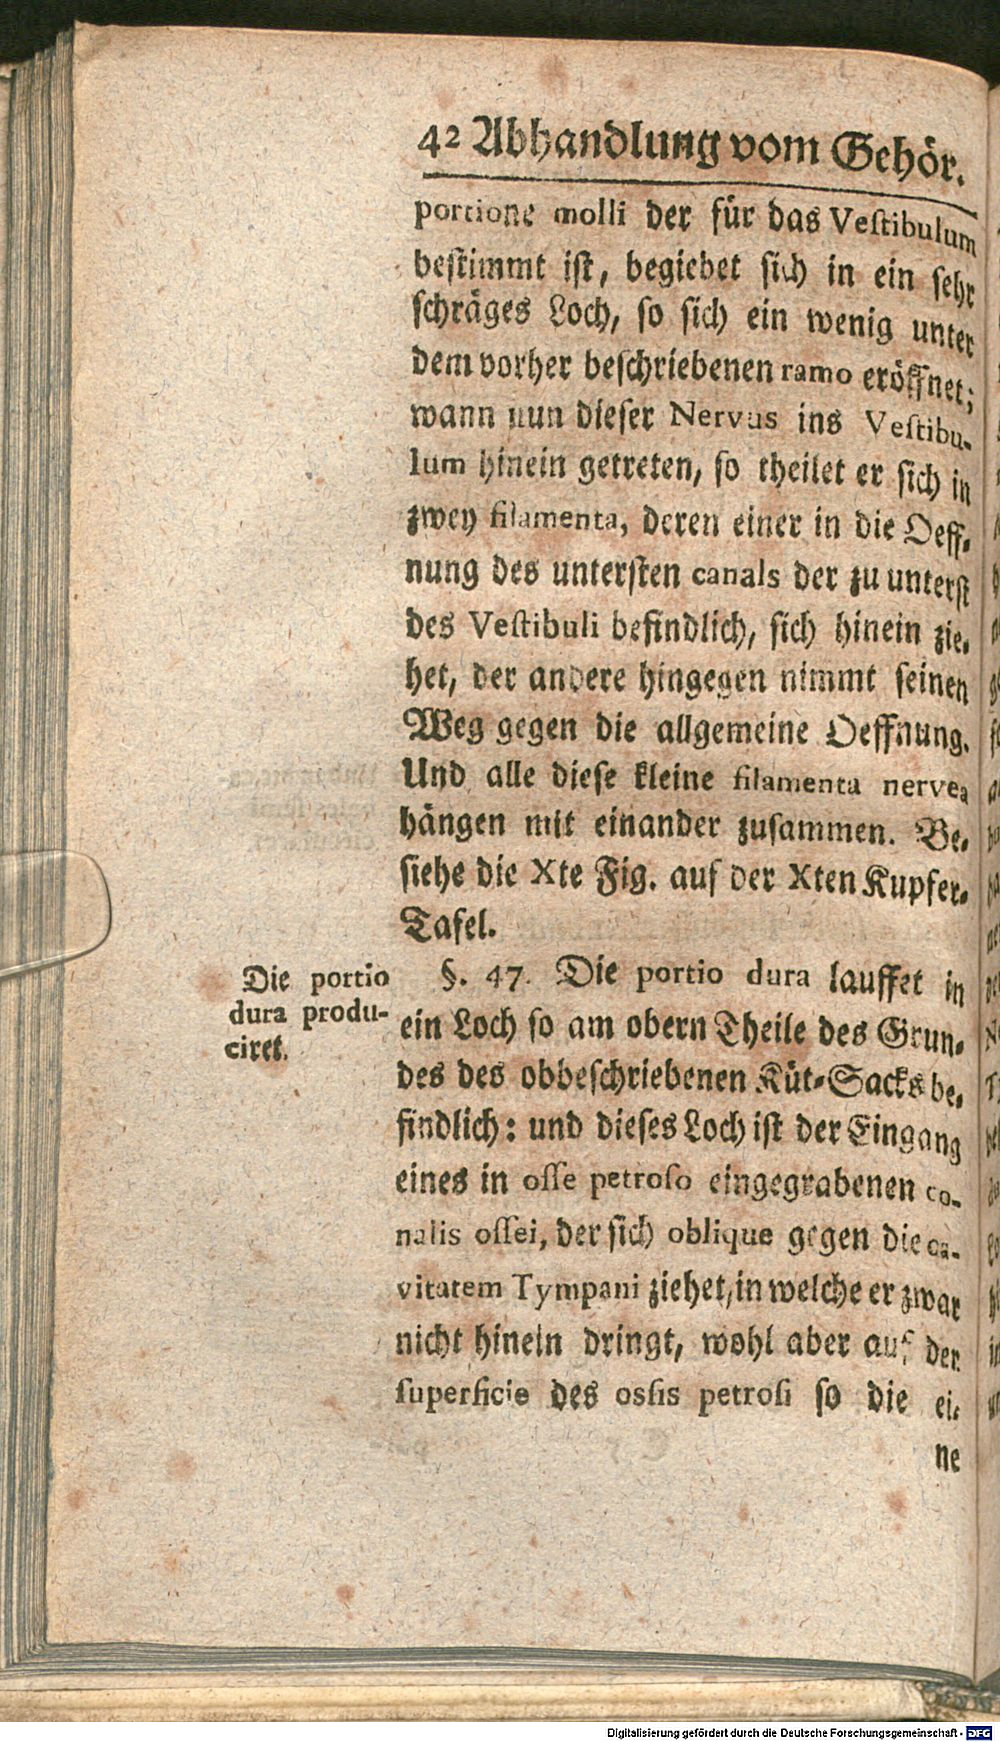 42 Abhandlung vom Gehör.
portione molli der für das Veſtibulum
beſtimmt iſt, begiebet ſich in ein ſehr
ſchräges Loch, ſo ſich ein wenig unter
dem vorher beſchriebenen ramo eröffnet;
wann nun dieſer Nervus ins Veſtibu-
lum hinein getreten, ſo theilet er ſich in
zwey filamenta, deren einer in die Oeff-
nung des unterſten canals der zu unterſt
des Veſtibuli befindlich, ſich hinein zie-
het, der andere hingegen nimmt ſeinen
Weg gegen die allgemeine Oeffnung.
Und alle dieſe kleine filamenta nervea
hängen mit einander zuſammen. Be-
ſiehe die Xte Fig. auf der Xten Kupfer-
Tafel.
Die portio
dura produ-
ciret.
§. 47. Die portio dura lauffet in
ein Loch ſo am obern Theile des Grun-
des des obbeſchriebenen Küt-Sacks be-
findlich: und dieſes Loch iſt der Eingang
eines in oſſe petroſo eingegrabenen co-
nalis oſſei, der ſich oblique gegen die ca-
vitatem Tympani ziehet, in welche er zwar
nicht hinein dringt, wohl aber auf der
ſuperficie des osſis petroſi ſo die ei-
ne
Digitalisierung gefördert durch die Deutsche Forschungsgemeinschaft - DFG